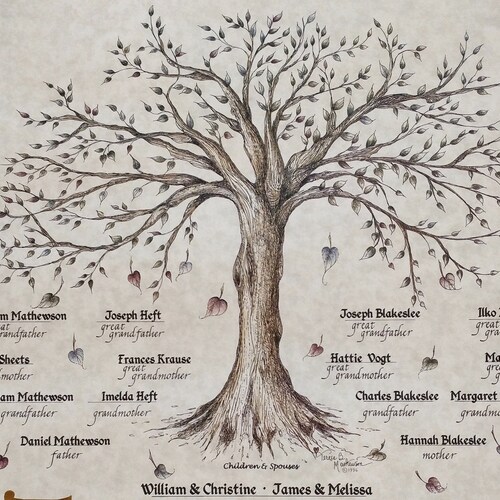 m Mathewson Joseph Heft Joseph Blakeslee Ilko
great great great
grandfather grandfather grandfather
Sheets Frances Krause Hattie Vogt
mother great great
grandmother grandmother
am Mathewson Imelda Heft Charles Blakeslee Margaret
grandfather grandmother grandfather grandmother
Daniel Mathewson Hannah Blakeslee
father mother
Mathewson
Children & Spouses
William & Christine · James & Melissa